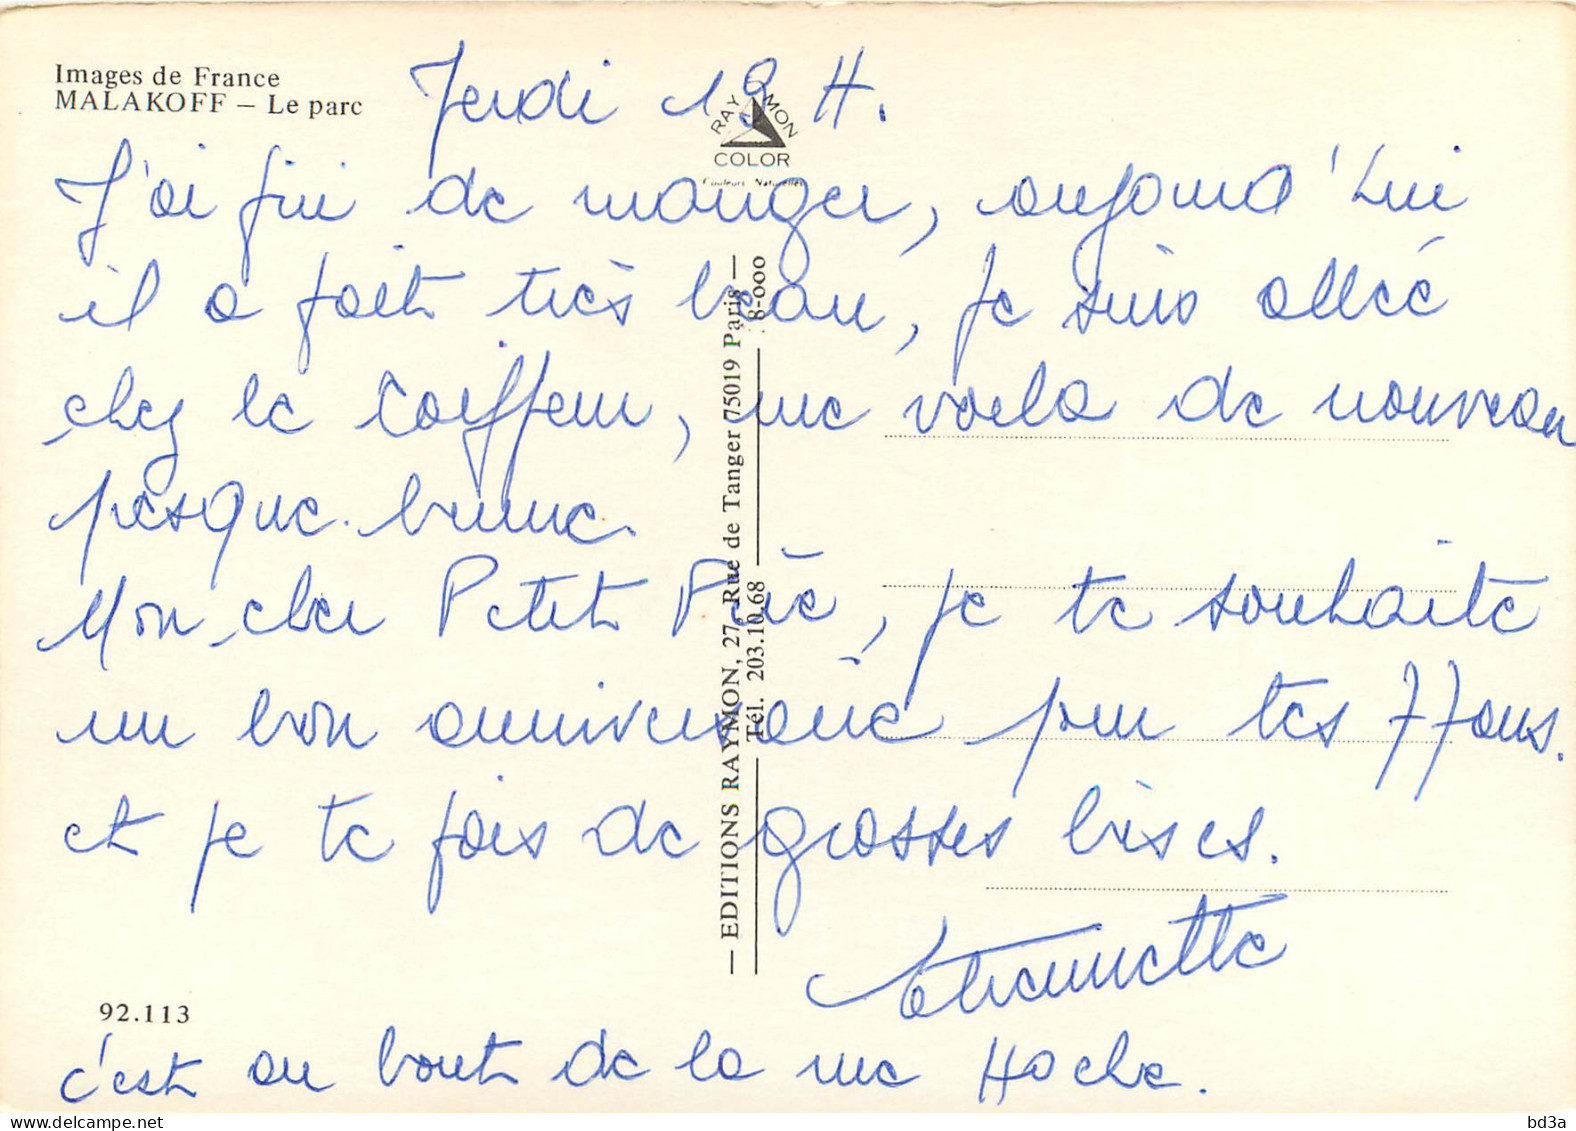 Images de France
MALAKOFF – Le parc
Jeudi 19 H.
RAYMON
COLOR
Couleurs Naturelles
J'ai fini de manger, aujourd'hui
il a fait très beau, je suis allée
chez le coiffeur, me voila de nouveau
presque brune.
Mon cher Petit Père, je te souhaite
un bon anniversaire pour tes 77 ans.
et je te fais de grosses bises.
c'est au bout de la rue Hoche.
92.113
— EDITIONS RAYMON, 27, Rue de Tanger 75019 Paris —
Tél. 203.10.68